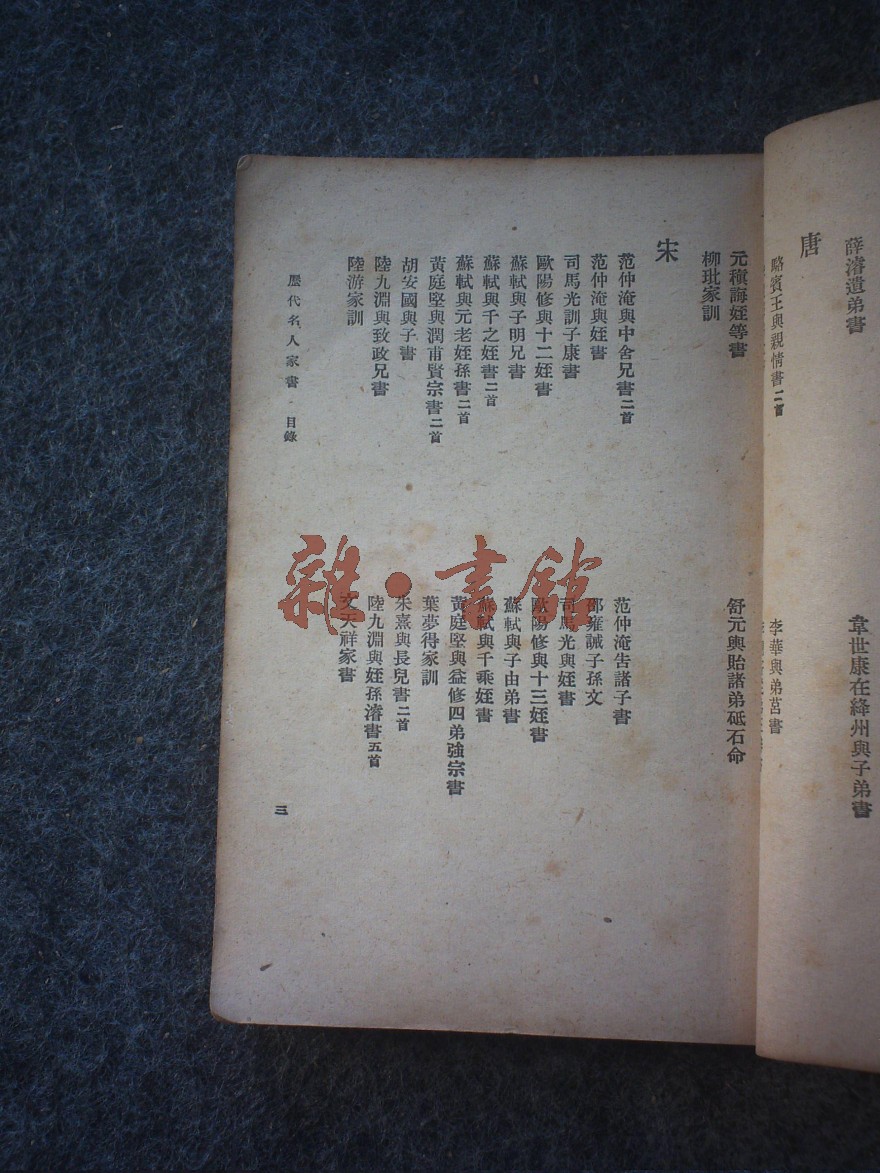 薛濬遺弟書
韋世康在絳州與子弟書
唐
駱賓王與親情書二首
李華與弟莒書
元稹誨姪等書
舒元輿貽諸弟砥石命
柳玭家訓
宋
范仲淹與中舍兄書二首
范仲淹告諸子書
范仲淹與姪書
邵雍誡子孫文
司馬光訓子康書
司馬光與姪書
歐陽修與十二姪書
歐陽修與十三姪書
蘇軾與子明兄書
蘇軾與子由弟書
蘇軾與千之姪書二首
蘇軾與千乘姪書
蘇軾與元老姪孫書二首
黃庭堅與益修四弟強宗書
黃庭堅與潤甫賢宗書二首
葉夢得家訓
胡安國與子書
朱熹與長兒書二首
陸九淵與致政兄書
陸九淵與姪孫濬書五首
陸游家訓
文天祥家書
歷代名人家書 目錄
三
雜·書館